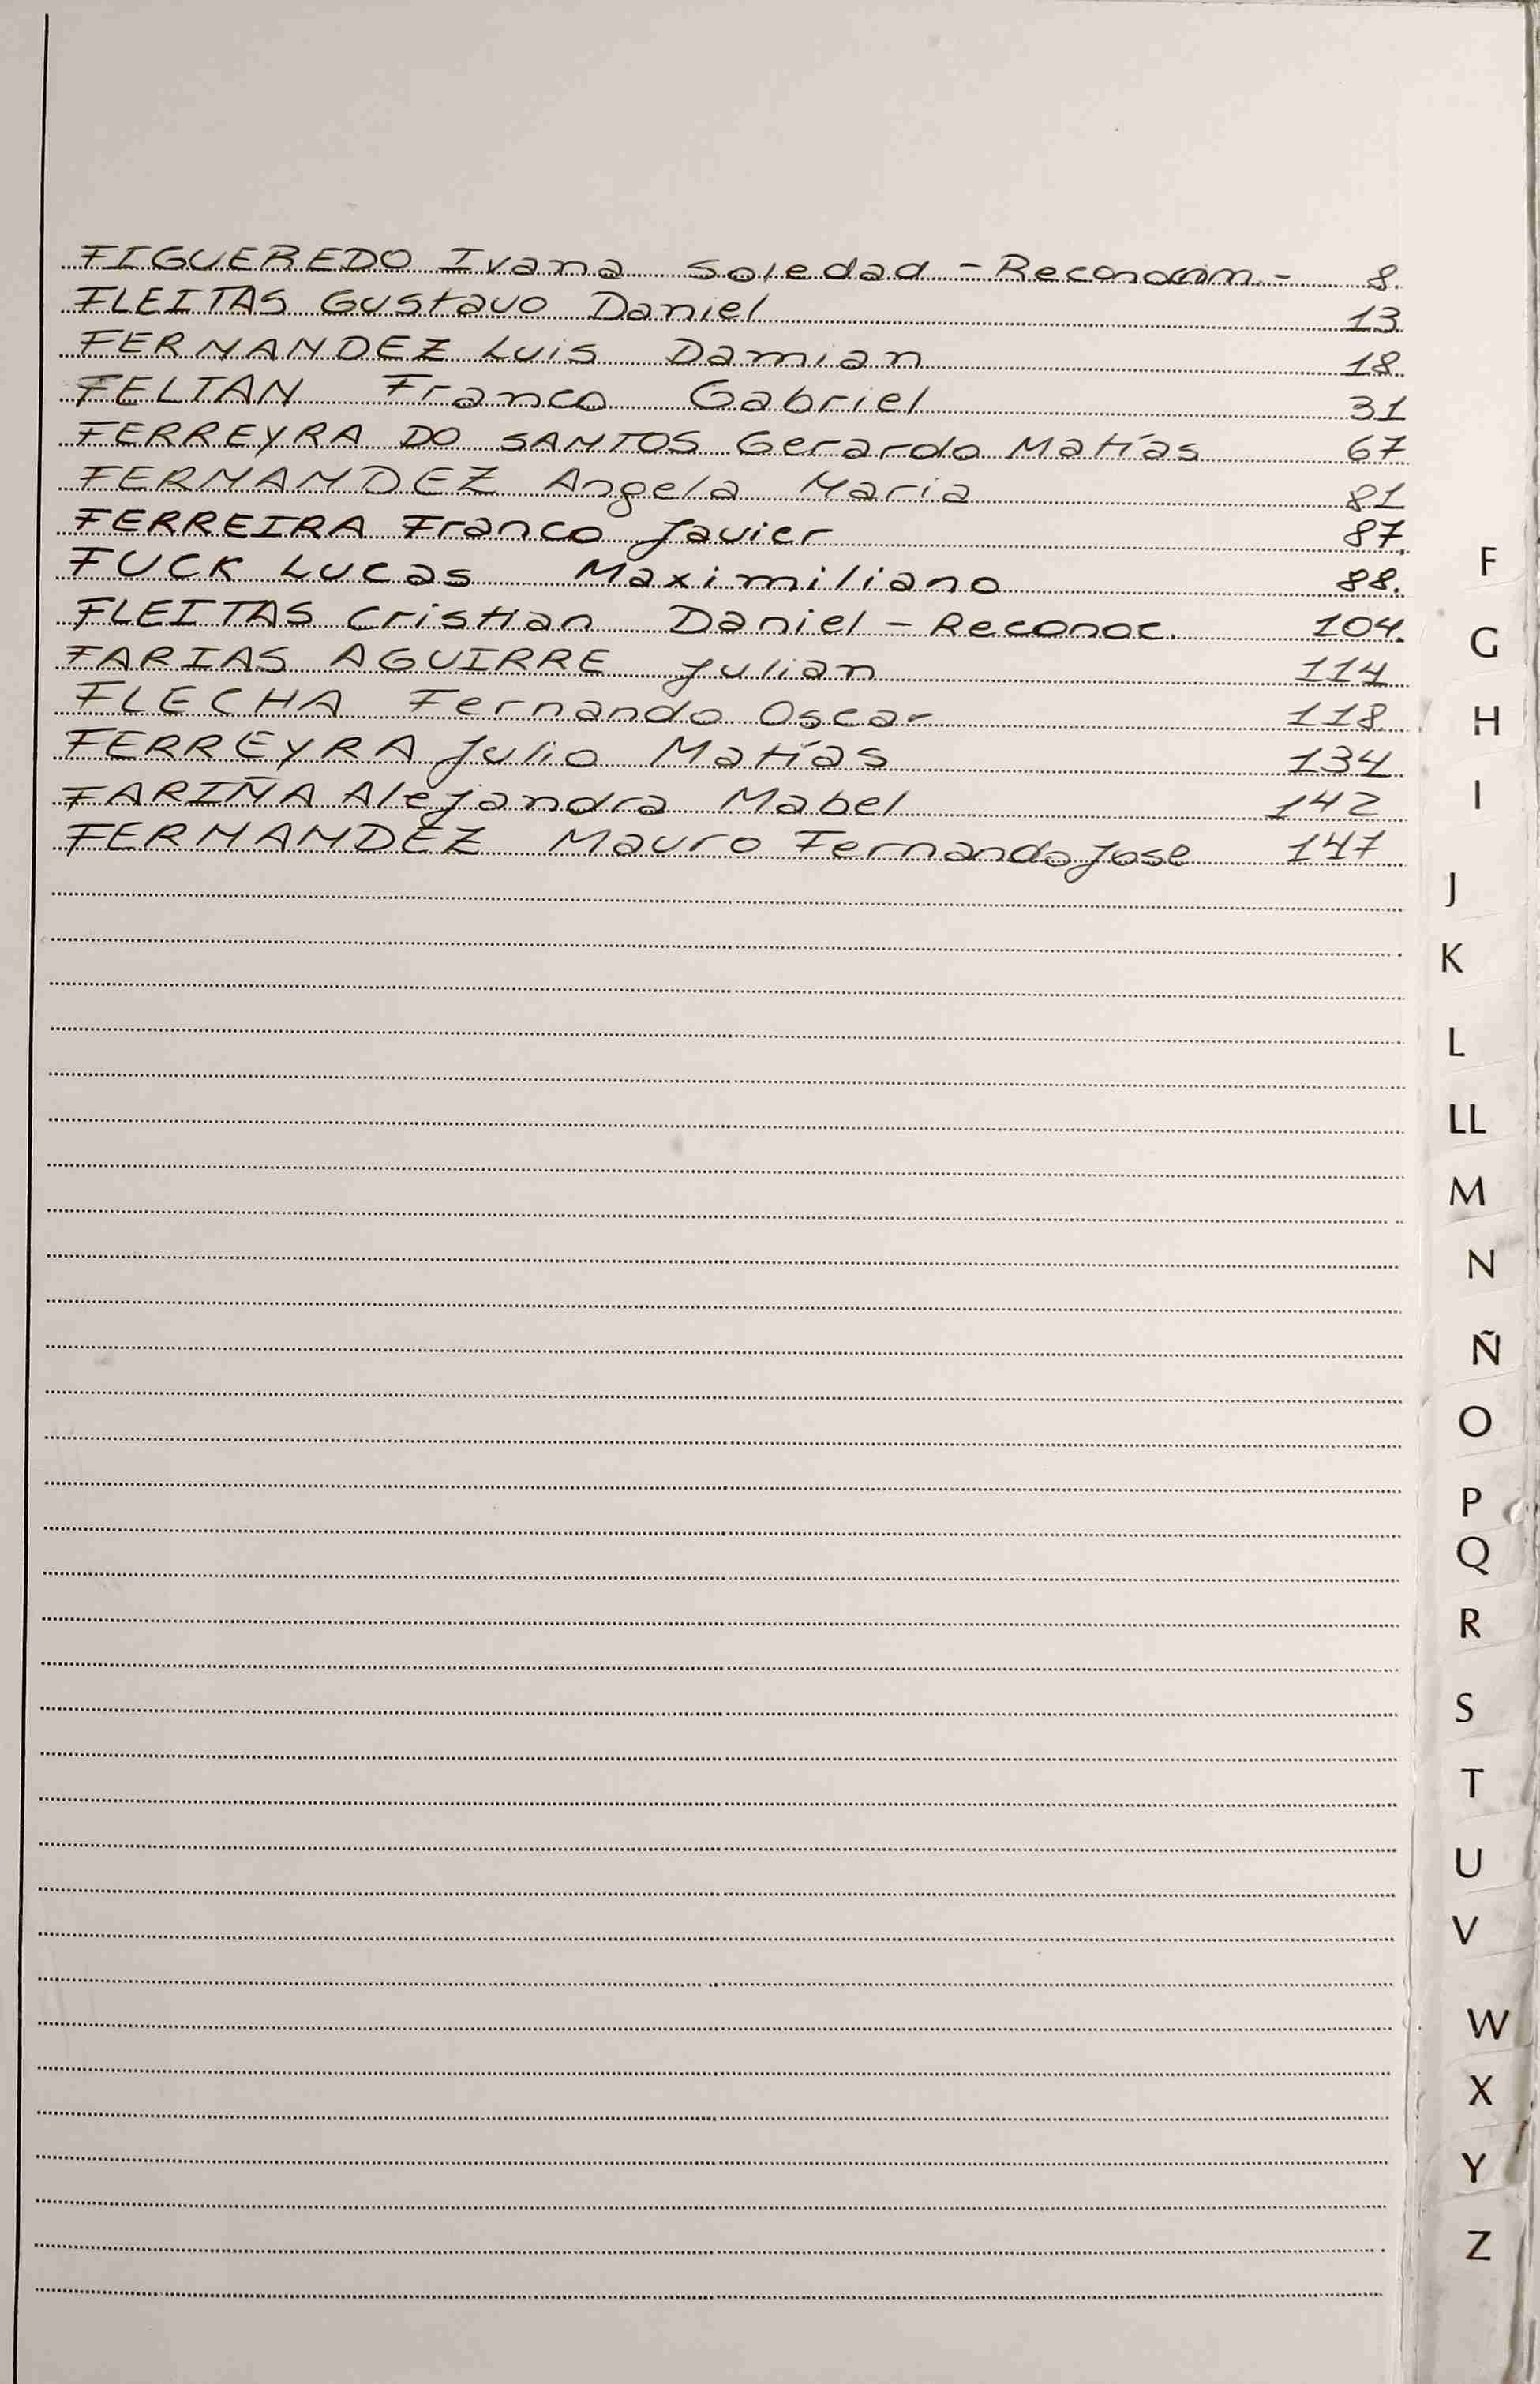 FIGUEREDO Ivana Soledad - Reconocim. - 8.
FLEITAS Gustavo Daniel 13
FERNANDEZ Luis Damian 18
FELTAN Franco Gabriel 31
FERREYRA DO SANTOS Gerardo Matías 67
FERNANDEZ Angela Maria 81
FERREIRA Franco Javier 87.
FUCK Lucas Maximiliano 88.
FLEITAS Cristian Daniel - Reconoc. 104.
FARIAS AGUIRRE Julian 114
FLECHA Fernando Oscar 118.
FERREYRA Julio Matías 134
FARIÑA Alejandra Mabel 142
FERNANDEZ Mauro Fernando Jose 147
F
G
H
I
J
K
L
LL
M
N
Ñ
O
P
Q
R
S
T
U
V
W
X
Y
Z